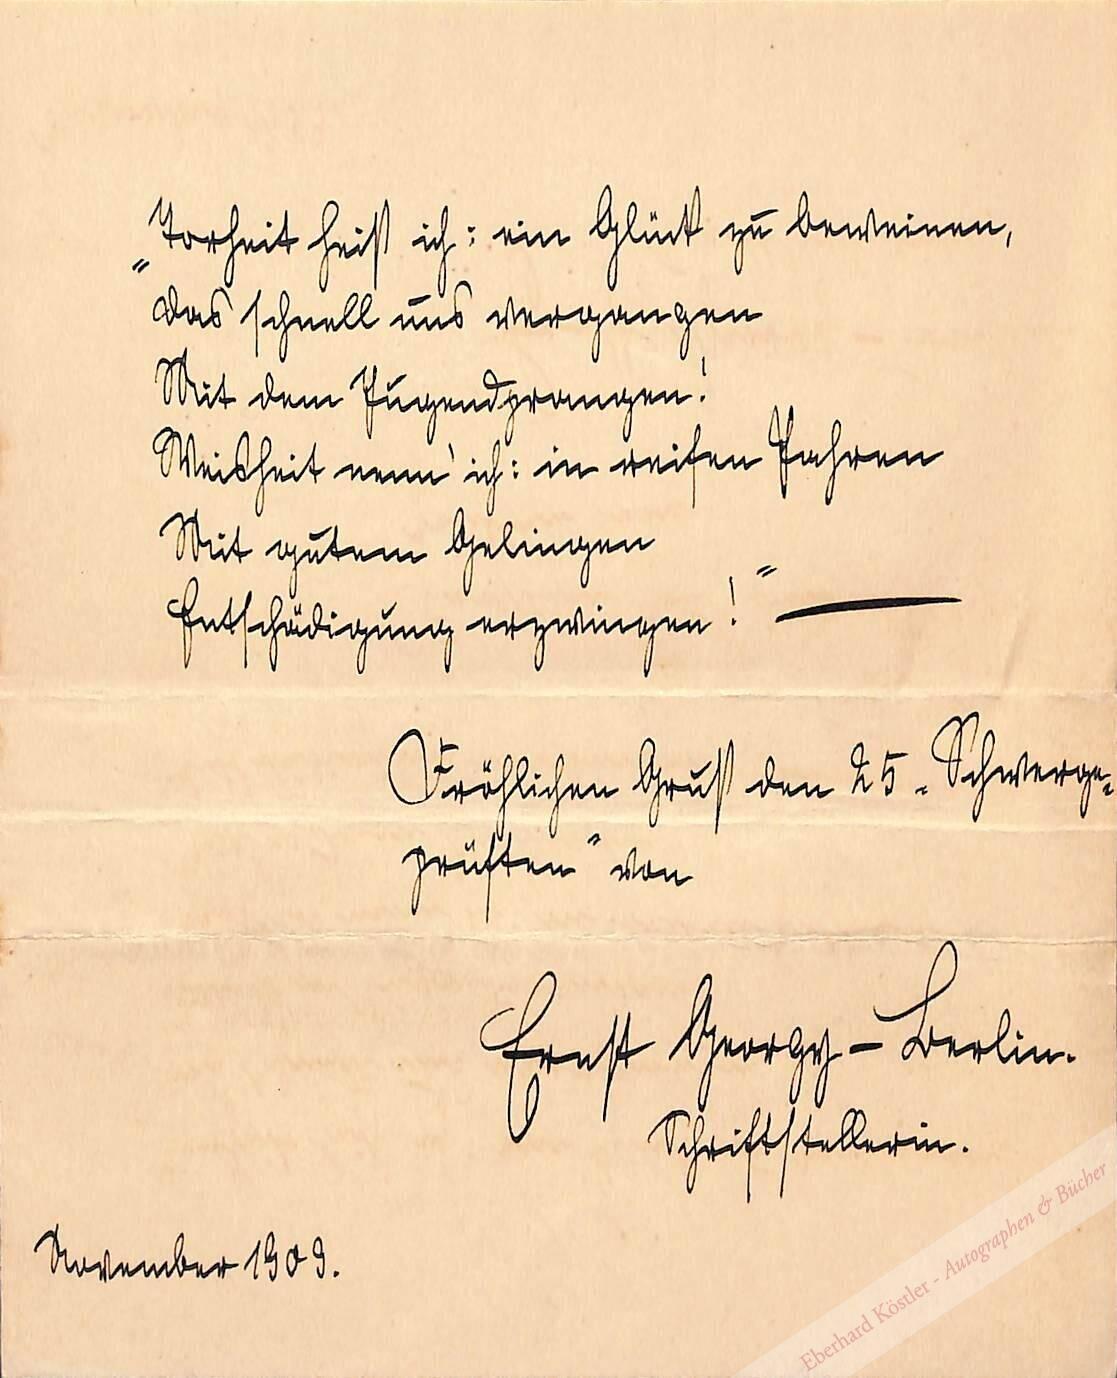 „Torheit heiß ich: ein Glück zu beweinen,
Das schnell uns vergangen
Mit dem Jugendprangen!
Weisheit nenn' ich: in reifen Jahren
Mit gutem Gelingen
Entschädigung erzwingen!" —
Fröhlichen Gruß den 25 „Schwerge-
prüften" von
Ernst Georgy – Berlin.
Schriftstellerin.
November 1909.
Eberhard Köstler - Autographen & Bücher